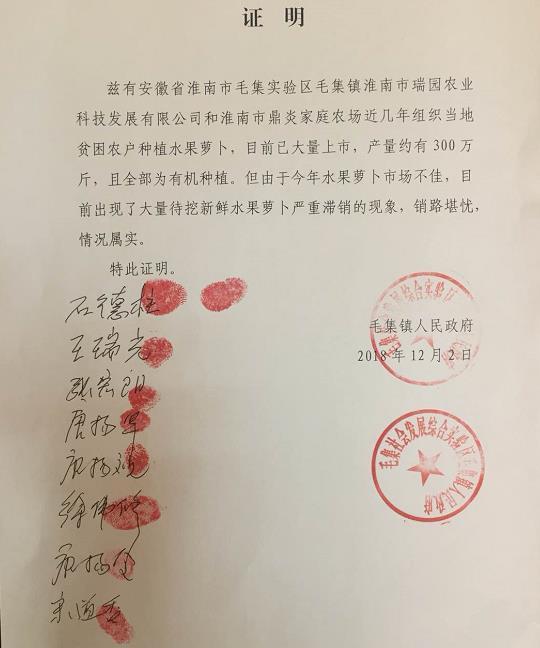 证 明
兹有安徽省淮南市毛集实验区毛集镇淮南市瑞园农业
科技发展有限公司和淮南市鼎炎家庭农场近几年组织当地
贫困农户种植水果萝卜，目前已大量上市，产量约有 300 万
斤，且全部为有机种植。但由于今年水果萝卜市场不佳，目
前出现了大量待挖新鲜水果萝卜严重滞销的现象，销路堪忧，
情况属实。
特此证明。
石德柱
王瑞光
毛集镇人民政府
2018 年 12 月 2 日
毛集社会发展综合实验区毛集镇人民政府